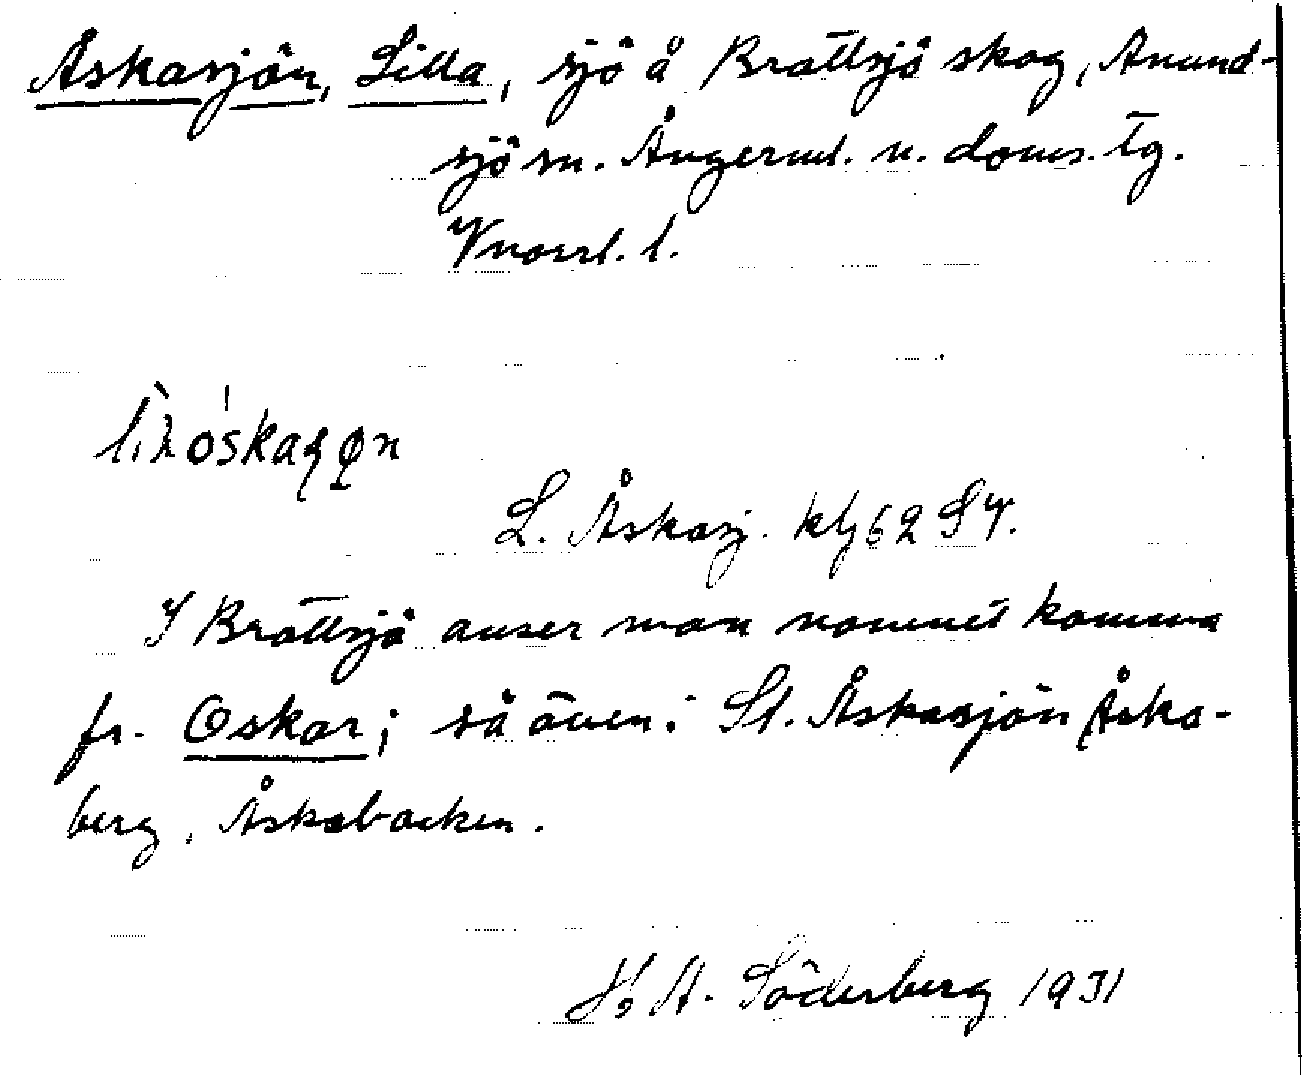 Åskasjön, Lilla, sjö å Brattsjö skog, Anund-
sjö sn. Ångerml. n. doms. tg.
Vnorrl. l.
L. Åskasj. klj 62 SV.
I Brattsjö anser man namnet komma
fr. Oskar; så även: St. Åskasjön, Åska-
berg, Åskabacken.
H. A. Söderberg 1931